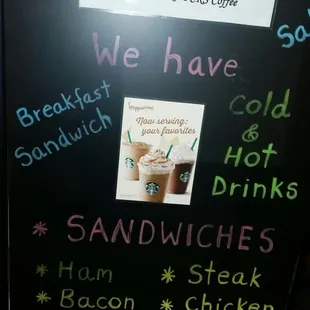 Coffee
Sal
We have
Breakfast
Sandwich
frappuccino
Now serving:
your favorites
Cold
&
Hot
Drinks
* SANDWICHES
* Ham * Steak
* Bacon * Chicken